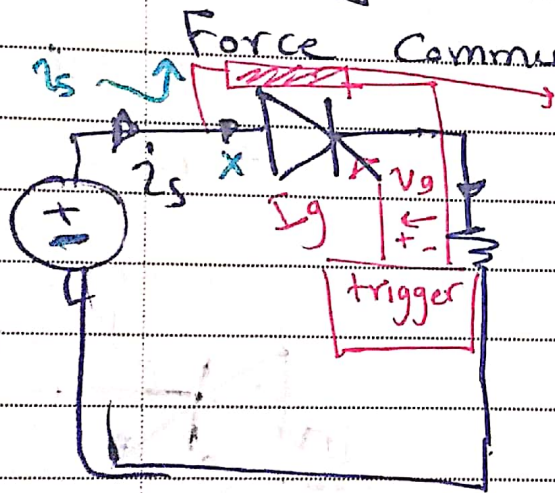 Force Commu
is
is
x
Ig
Vg
+ -
+
-
trigger